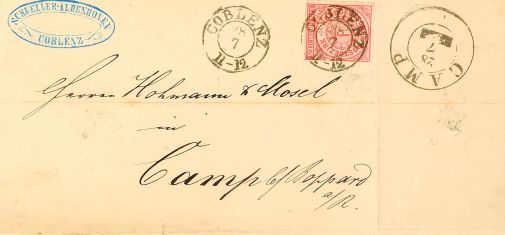 SCHUELLER-ALDENHOVEN
COBLENZ
COBLENZ
28
7
11-12
COBLENZ
11-12
CAMP
28
7
Herren Hohmann & Mosel
in
Camp b/Boppard
a/R.